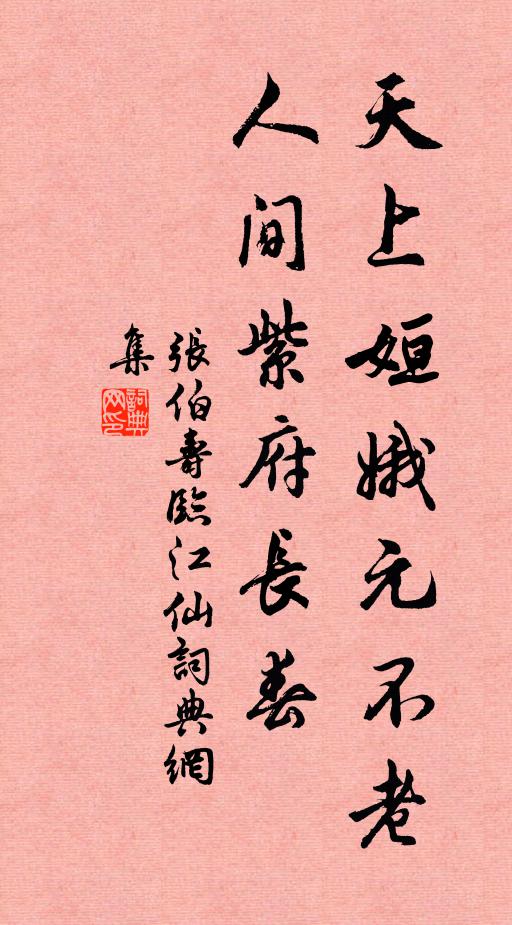 天上姮娥元不老
人间紫府長春
張伯壽臨江仙詞典網
集
詞典
网印